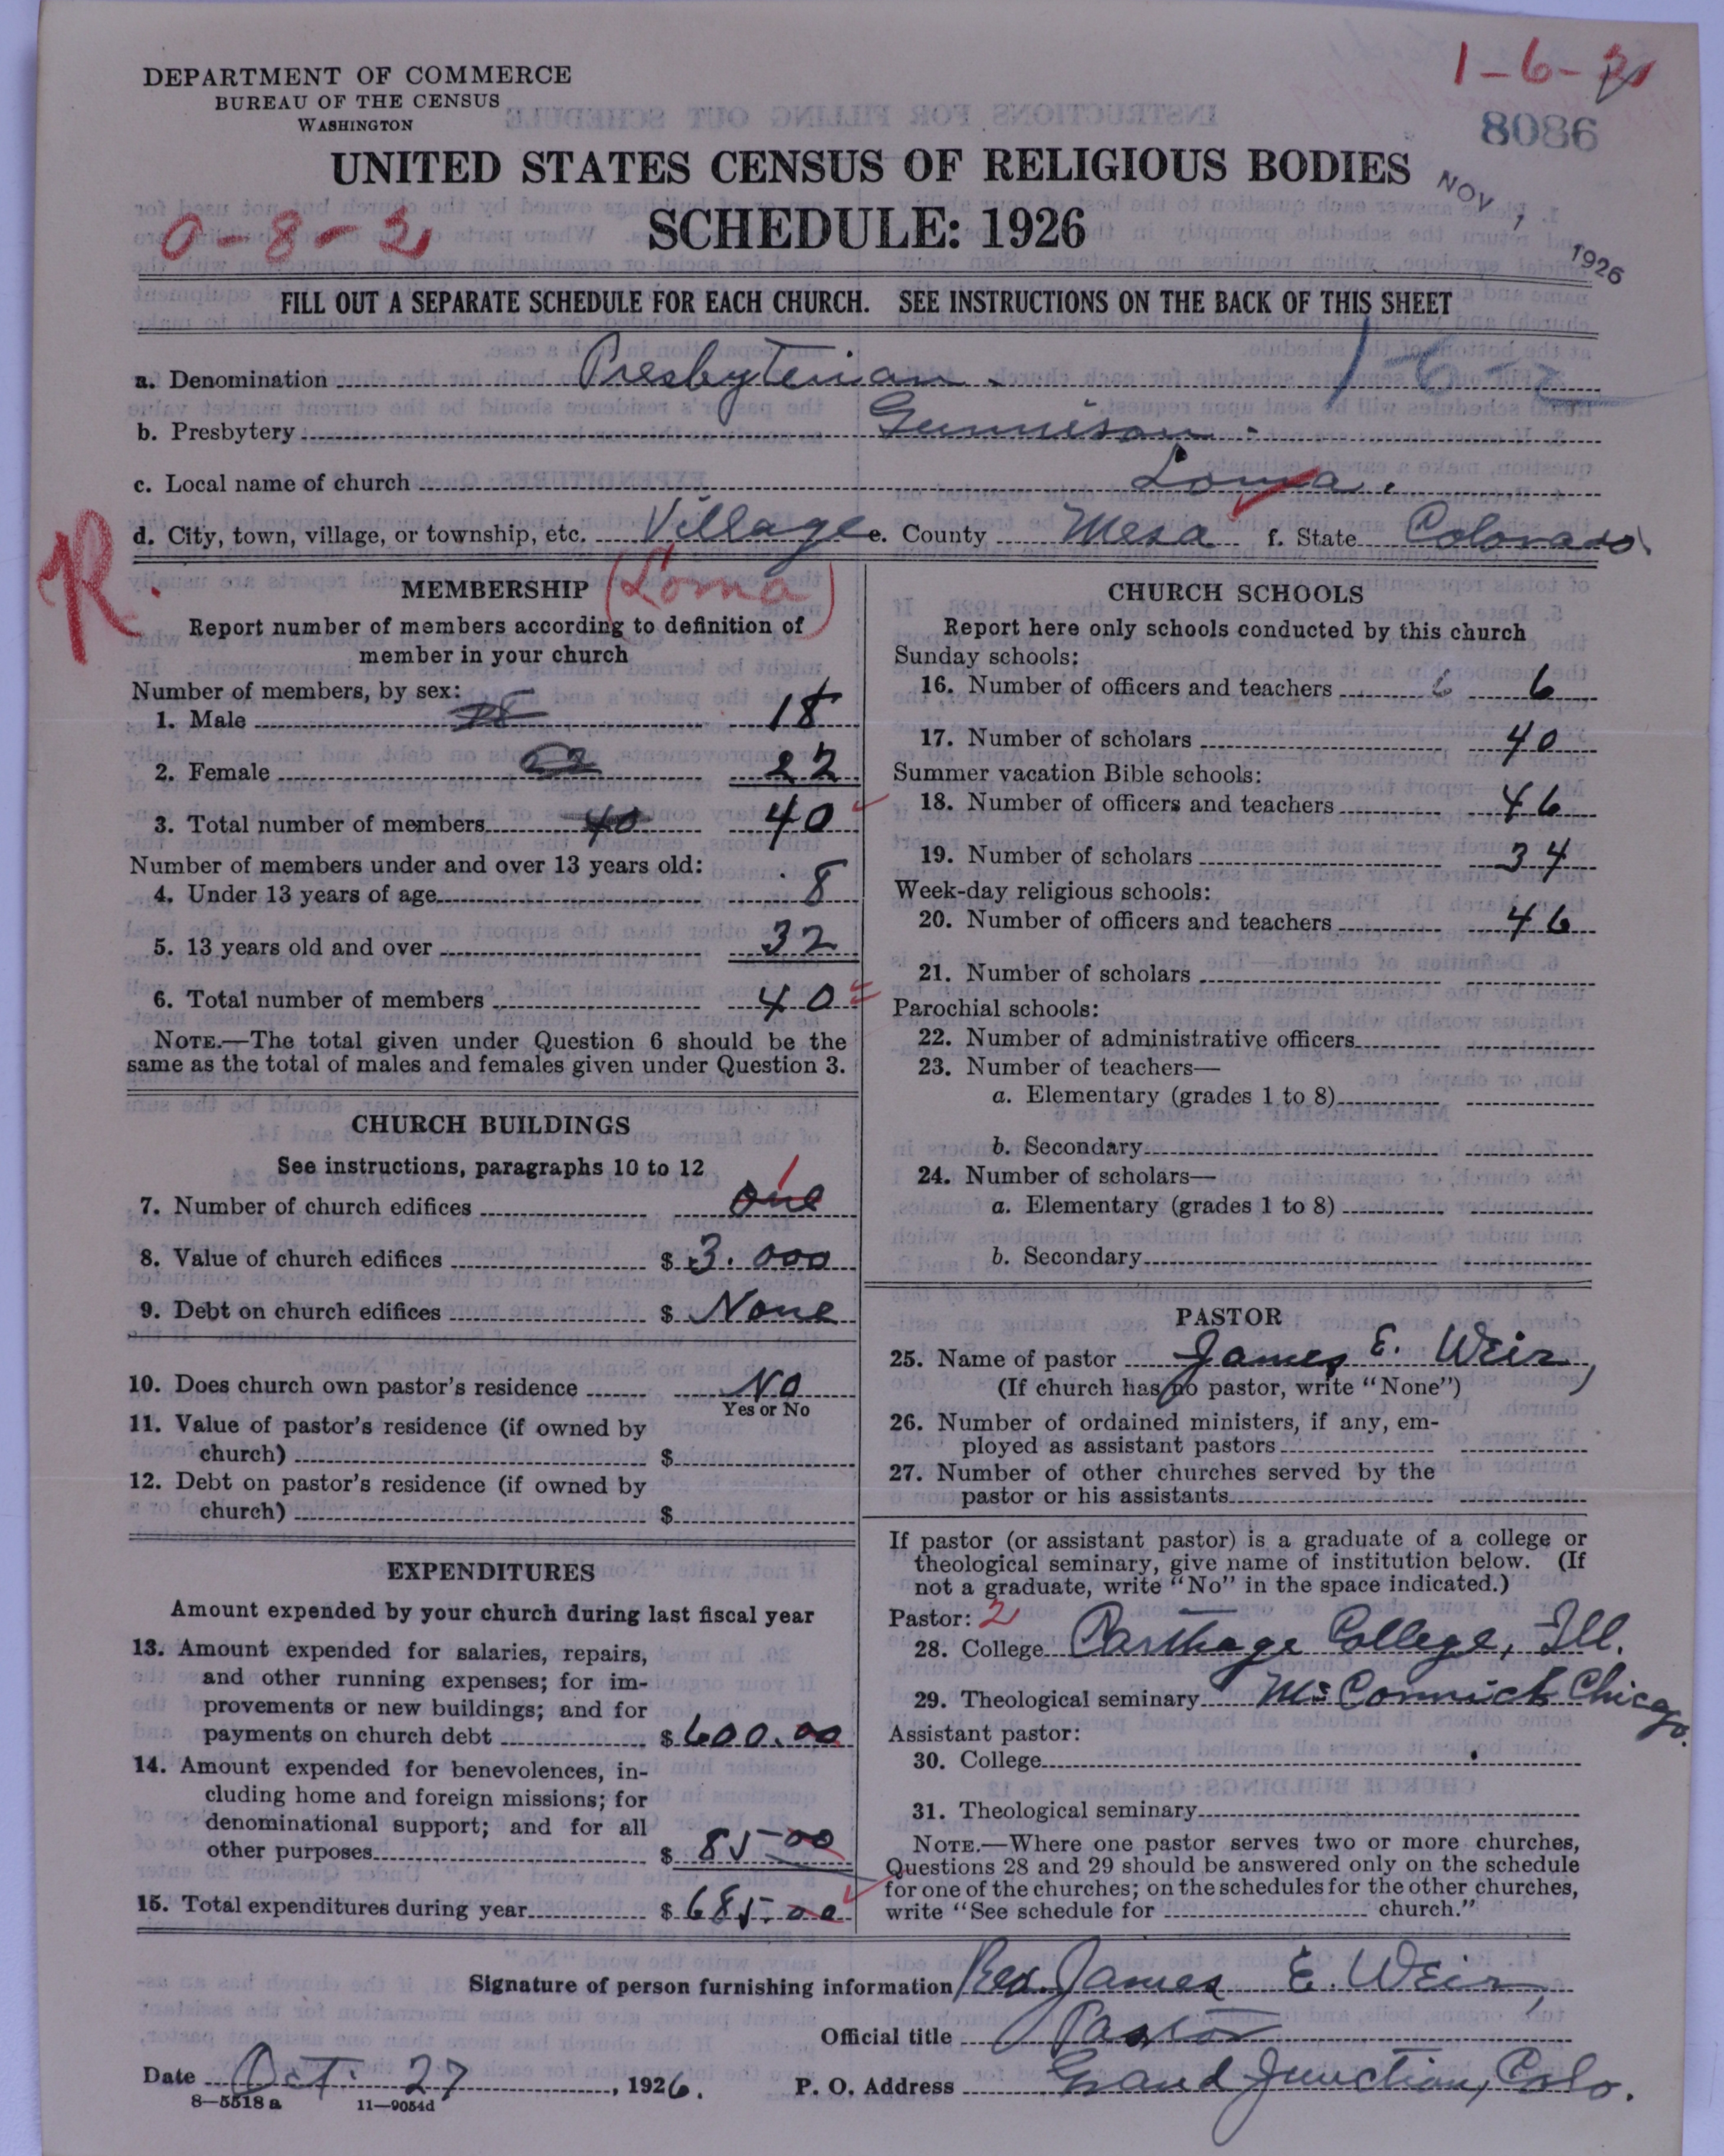 DEPARTMENT OF COMMERCE
BUREAU OF THE CENSUS
WASHINGTON
1-6-2
8086
UNITED STATES CENSUS OF RELIGIOUS BODIES
NOV 1 1926
0-8-2
SCHEDULE: 1926
FILL OUT A SEPARATE SCHEDULE FOR EACH CHURCH. SEE INSTRUCTIONS ON THE BACK OF THIS SHEET
a. Denomination Presbyterian. 1-6-2
b. Presbytery Gunnison.
c. Local name of church Loma.
d. City, town, village, or township, etc. Village e. County Mesa f. State Colorado
R.
(Loma)
MEMBERSHIP
Report number of members according to definition of
member in your church
Number of members, by sex:
1. Male 18 18
2. Female 22 22
3. Total number of members 40 40
Number of members under and over 13 years old:
4. Under 13 years of age 8
5. 13 years old and over 32
6. Total number of members 40
NOTE.—The total given under Question 6 should be the
same as the total of males and females given under Question 3.
CHURCH BUILDINGS
See instructions, paragraphs 10 to 12
7. Number of church edifices one 1
8. Value of church edifices $ 3.000
9. Debt on church edifices $ None
10. Does church own pastor's residence No
Yes or No
11. Value of pastor's residence (if owned by
church) $
12. Debt on pastor's residence (if owned by
church) $
EXPENDITURES
Amount expended by your church during last fiscal year
13. Amount expended for salaries, repairs,
and other running expenses; for im-
provements or new buildings; and for
payments on church debt $ 600.00
14. Amount expended for benevolences, in-
cluding home and foreign missions; for
denominational support; and for all
other purposes $ 85-00
15. Total expenditures during year $ 685.00
CHURCH SCHOOLS
Report here only schools conducted by this church
Sunday schools:
16. Number of officers and teachers 6 6
17. Number of scholars 40
Summer vacation Bible schools:
18. Number of officers and teachers 46
19. Number of scholars 34
Week-day religious schools:
20. Number of officers and teachers 46
21. Number of scholars
Parochial schools:
22. Number of administrative officers
23. Number of teachers—
a. Elementary (grades 1 to 8)
b. Secondary
24. Number of scholars—
a. Elementary (grades 1 to 8)
b. Secondary
PASTOR
25. Name of pastor James E. Weir,
(If church has no pastor, write "None")
26. Number of ordained ministers, if any, em-
ployed as assistant pastors
27. Number of other churches served by the
pastor or his assistants
If pastor (or assistant pastor) is a graduate of a college or
theological seminary, give name of institution below. (If
not a graduate, write "No" in the space indicated.)
Pastor: 2
28. College Carthage College, Ill.
29. Theological seminary McCormick Chicago.
Assistant pastor:
30. College
31. Theological seminary
NOTE.—Where one pastor serves two or more churches,
Questions 28 and 29 should be answered only on the schedule
for one of the churches; on the schedules for the other churches,
write "See schedule for church."
Signature of person furnishing information Rev. James E. Weir,
Official title Pastor
Date Oct. 27, 1926. P. O. Address Grand Junction, Colo.
8—5518 a 11—9054d